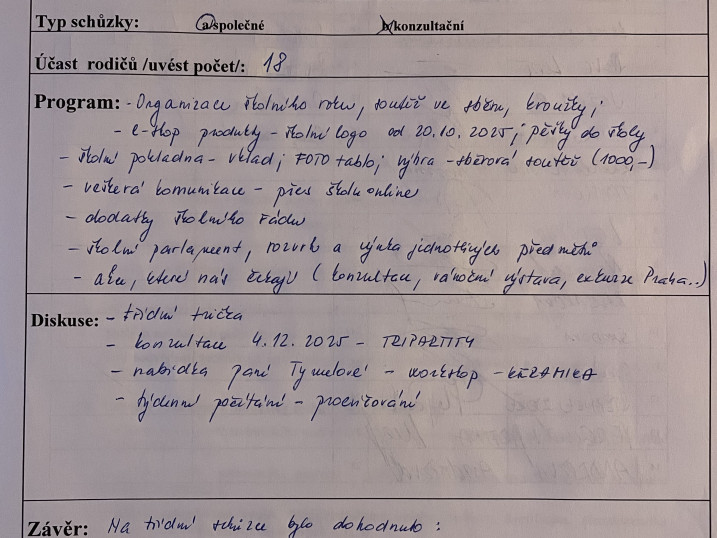 Typ schůzky: a/společné b/konzultační
Účast rodičů /uvést počet/: 18
Program: - Organizace školního roku, soutěž ve sběru, kroužky;
- e-shop produkty - školní logo od 20.10.2025; pěšky do školy
- školní pokladna - vklad; FOTO tablo; výhra - sběrová soutěž (1000,-)
- veškerá komunikace - přes školu online
- dodatky školního řádu
- školní parlament, rozvrh a výuka jednotlivých předmětů
- akce, které nás čekají (konzultace, vánoční výstava, exkurze Praha..)
Diskuse: - třídní trička
- konzultace 4.12.2025 - TRIPARTITY
- nabídka paní - workshop - KERAMIKA
- týdenní počítání - procvičování
Závěr: Na třídní schůzce bylo dohodnuto: